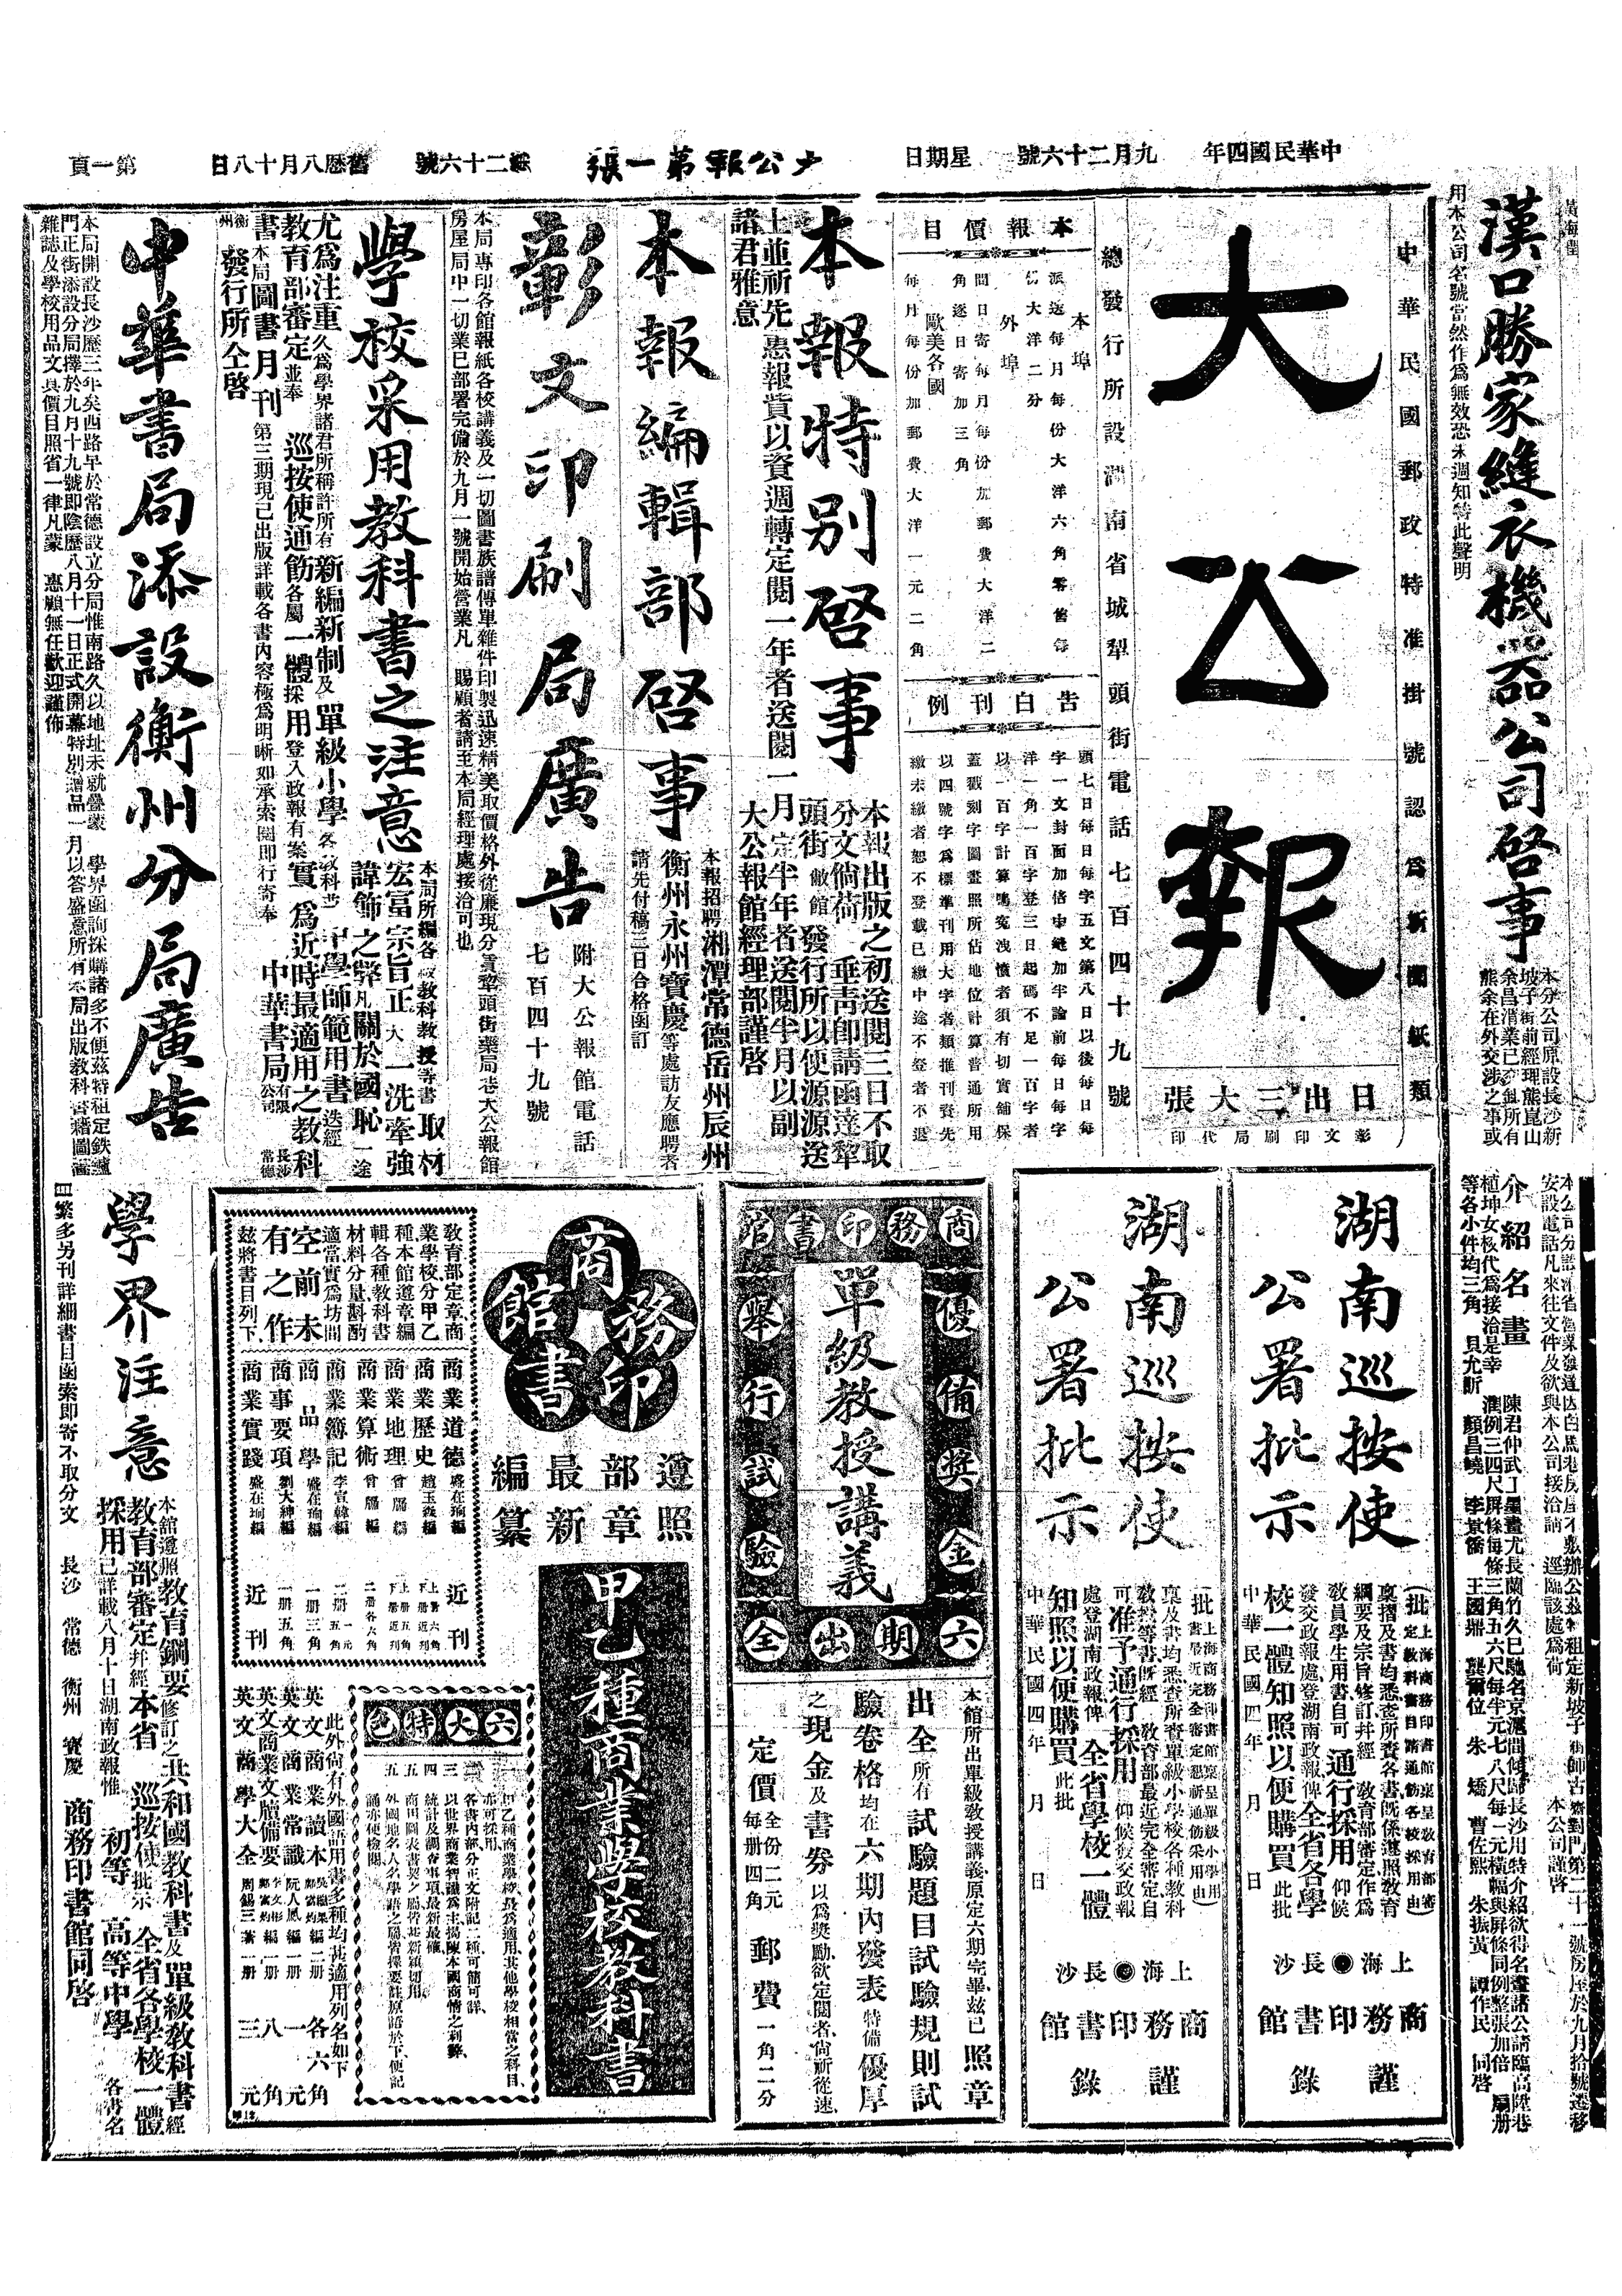 中華民國四年
九月二十六號
星期日
大公報第一張
紙二十六號
舊歷八月十八日
第一頁
漢口勝家縫衣機器公司啓事
本分公司原設長沙新
坡子街前經理熊崑山
熊余在外交涉之事或
用本公司名號當然作爲無效恐未週知特此聲明
中華民國郵政特准掛號認爲新聞紙類
大公報
日出三大張
彰文印刷局代印
總發行所設湖南省城犁頭街電話七百四十九號
本報價目
本埠
派送每月每份大洋六角零售每
份大洋二分
外埠
間日寄每月每份加郵費大洋二
角逐日寄加三角
歐美各國
每月每份加郵費大洋一元二角
告白刊例
頭七日每日每字五文第八日以後每日每
字一文封面加倍中縫加半論前每日每字
洋一角一百字登三日起碼不足一百字者
以一百字計算鳴冤洩憤者須有切實鋪保
蓋戳刻字圖畫照所佔地位計算普通所用
以四號字爲標準刊用大字者類推刊資先
繳未繳者恕不登載已繳中途不登者不退
本報特別啓事
本報出版之初送閱三日不取
分文倘荷 垂靑卽請函達犂
頭街敝館發行所以便源源送
上並祈先惠報貲以資週轉定閱一年者送閱一月定半年者送閱半月以副
諸君雅意
大公報館經理部謹啓
本報編輯部啓事
本報招聘湘潭常德岳州辰州
衡州永州寶慶等處訪友應聘者
請先付稿三日合格函訂
彰文印刷局廣告
附大公報館電話
七百四十九號
本局專印各館報紙各校講義及一切圖書族譜傳單雜件印製迅速精美取價格外從廉現分設犂頭街藥局巷大公報館
房屋局中一切業已部署完備於九月一號開始營業凡 賜顧者請至本局經理處接洽可也
學校采用教科書之注意
本局所編各級教科教授等書取材
宏富宗旨正大一洗牽強
諱飾之弊凡關於國恥一途
尤爲注重久爲學界諸君所稱許所有新編新制及單級小學各敎科書中學師範用書迭經
敎育部審定並奉 巡按使通飭各屬一體採用登入政報有案實爲近時最適用之敎科
書本局圖書月刊第三期現已出版詳載各書內容極爲明晰如承索閱卽行寄奉
中華書局有限公司
長沙
常德
衡州
發行所仝啓
中華書局添設衡州分局廣告
本局開設長沙歷三年矣西路早於常德設立分局惟南路久以地址未就疊蒙 學界函詢採購諸多不便茲特租定鐵爐
門正街添設分局擇於九月十九號卽陰歷八月十一日正式開幕特別贈品一月以答盛意所有本局出版敎科書籍圖畫
雜誌及學校用品文具價目照省一律凡蒙 惠顧無任歡迎謹佈
介紹名畫
湖南巡按使
公署批示
(批上海商務印書館稟呈敎育部審
定敎科書目請通飭各校採用由)
稟摺及書均悉查所賫各書旣係遵照敎育
綱要及宗旨修訂幷經 敎育部審定作爲
敎員學生用書自可通行採用仰候
發交政報處登湖南政報俾全省各學
校一體知照以便購買此批
中華民國四年 月 日
上海 長沙
商務印書館
謹錄
湖南巡按使
公署批示
(批上海商務印書館稟呈單級小學用
書最近完全審定懇祈通飭采用由)
稟及書均悉查所賫單級小學校各種敎科
敎授等書旣經 敎育部最近完全審定自
可准予通行採用仰候發交政報
處登湖南政報俾 全省學校一體
知照以便購買此批
中華民國四年 月 日
上海 長沙
商務印書館
謹錄
商務印書館
單級教授講義
優備獎金
舉行試驗
六期出全
本館所出單級敎授講義原定六期完畢茲已照章
出全所有試驗題目試驗規則試
驗卷格均在六期內發表特備優厚
之現金及書券以爲獎勵欲定閱者尙祈從速
定價
全份二元
每册四角
郵費一角二分
商務印書館
遵照
部章
最新
編纂
甲乙種商業學校教科書
敎育部定章商
業學校分甲乙
種本館遵章編
輯各種敎科書
材料分量斟酌
適當實爲坊間
空前未
有之作
茲將書目列下
商業道德 盛在珦編 近刊
商業歷史 趙玉森編
商業地理 曾膺編
商業算術 曾膺編 二册各六角
商業簿記 李宣韓編 二册一元五角
商品學 盛在珦編 一册三角
商事要項 劉大紳編 一册五角
商業實踐 盛在珦編 近刊
六大特色
甲乙種商業學校最爲適用其他學校相當之科目
亦可採用
各書內部分正文附記二種可簡可詳
以世界商業智識爲主揭陳本國商情之利弊
統計及調查事項最新最確
商用圖表書契之屬皆甚新穎切用
外國地名人名學語之屬皆擇要註原語於下便記
誦亦便檢閱
此外尙有外國語用書多種均甚適用列名如下
英文商業讀本
英文商業常識
英文商業文牘備要
英文商學大全 周錫三著一册 三元
學界注意
本館遵照敎育綱要修訂之共和國敎科書及單級敎科書經
敎育部審定幷經本省 巡按使批示 全省各學校一體
採用已詳載八月十日湖南政報惟 初等 高等中學 各書名
目繁多另刊詳細書目函索卽寄不取分文 長沙 常德 衡州 寶慶 商務印書館同啓